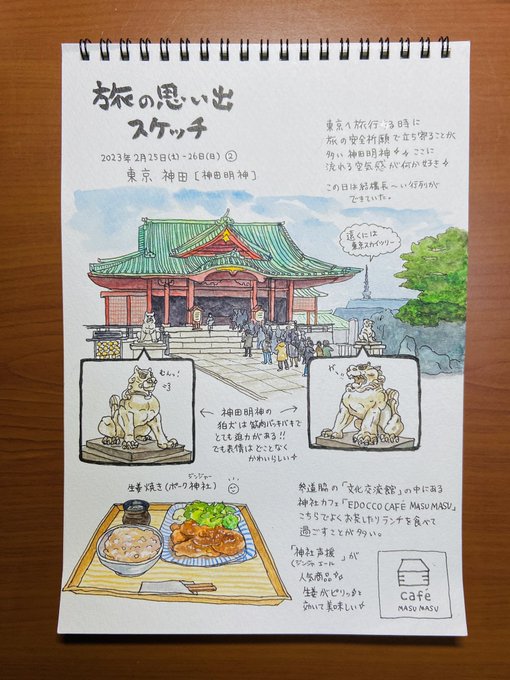 旅の思い出
スケッチ
2023年2月25日(土)-26日(日) ②
東京 神田 [神田明神]
東京へ旅行する時に
旅の安全祈願で立ち寄ることが
多い神田明神 ここに
流れる空気感が何か好き
この日は結構長〜い行列が
できていた。
遠くには
東京スカイツリー
むんっ!
ガー
← 神田明神の →
狛犬は筋肉バッキバキで
とても迫力がある!!
でも表情はどことなく
かわいらしい
ジンジャー
生姜焼き(ポーク神社)
参道脇の「文化交流館」の中にある
神社カフェ「EDOCCO CAFÉ MASU MASU」
こちらでよくお茶したりランチを食べて
過ごすことが多い。
「神社声援」が
(ジンジャエール
人気商品
生姜がピリッと
効いて美味しい
café
MASU MASU